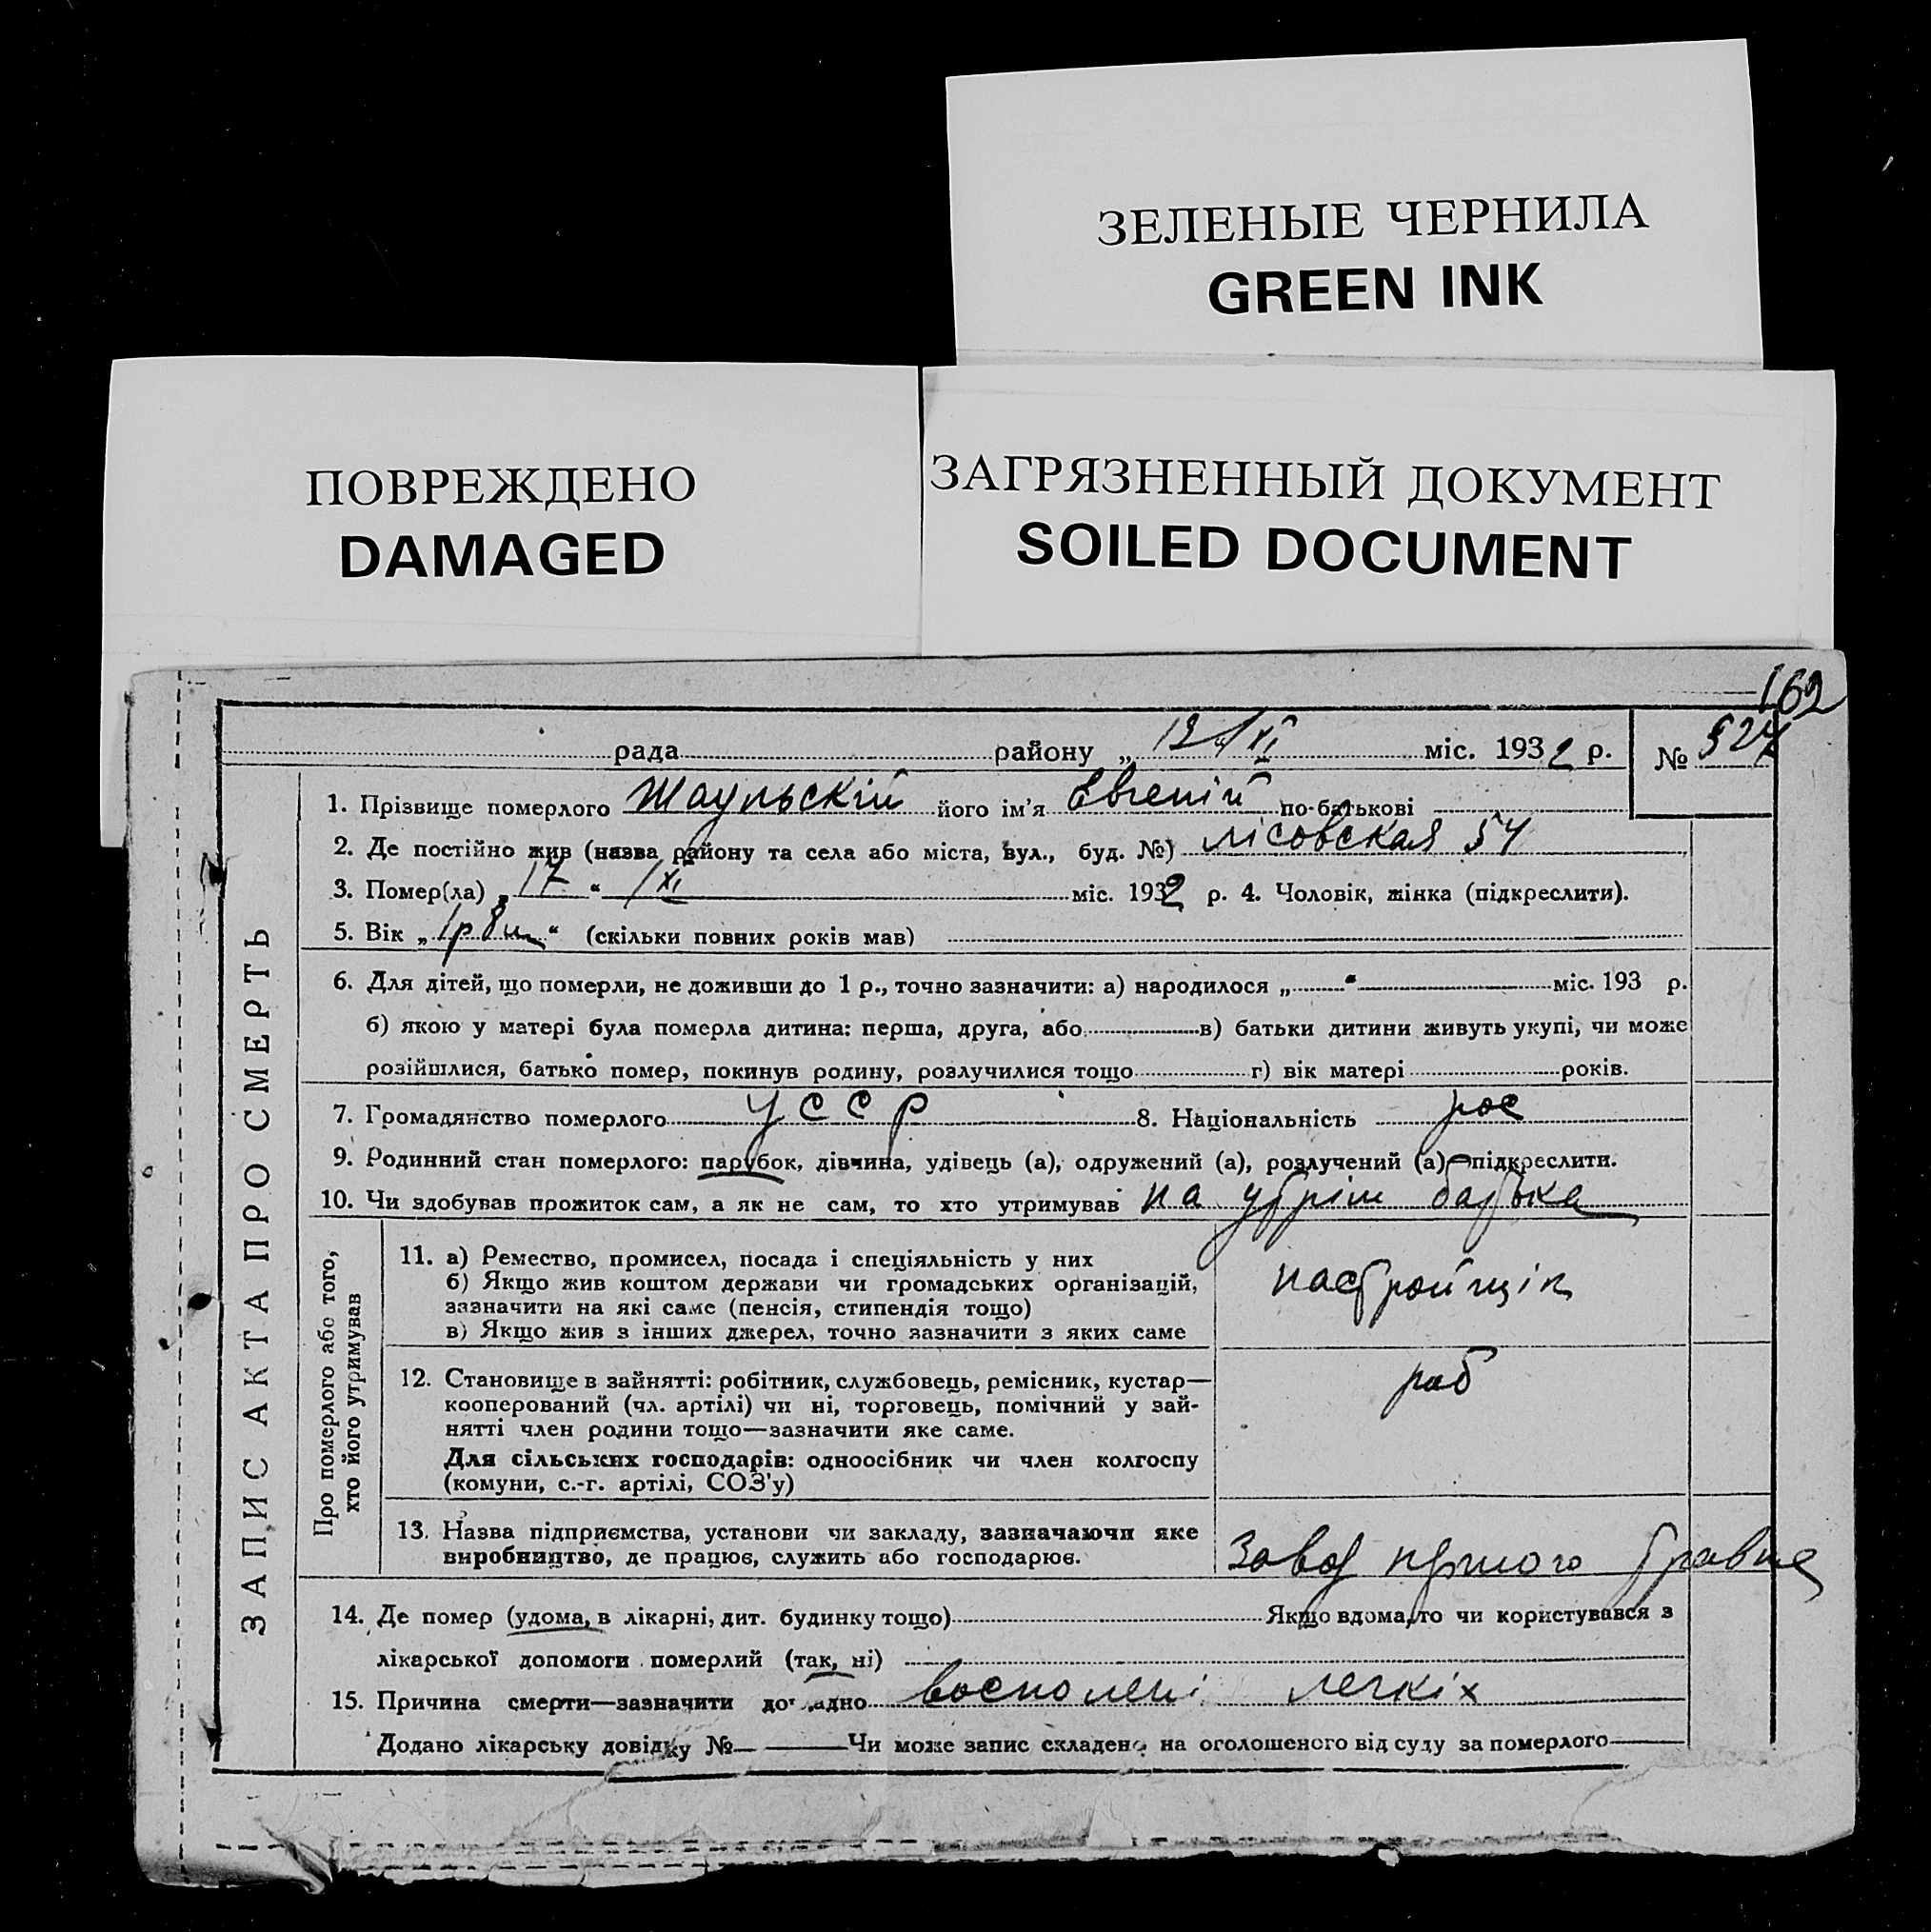 ЗЕЛЕНЫЕ ЧЕРНИЛА
GREEN INK
ПОВРЕЖДЕНО
DAMAGED
ЗАГРЯЗНЕННЫЙ ДОКУМЕНТ
SOILED DOCUMENT
162
рада району „ XI міс. 1932 р. № 527
ЗАПИС АКТА ПРО СМЕРТЬ
1. Прізвище померлого його ім'я Евгеній по-батькові
2. Де постійно жив (назва району та села або міста, вул., буд. №) лісовская 54
3. Помер(ла) „ 17 “ XI міс. 1932 р. 4. Чоловік, жінка (підкреслити).
5. Вік „ 1 р 8 м “ (скільки повних років мав)
6. Для дітей, що померли, не доживши до 1 р., точно зазначити: а) народилося „ “ міс. 193 р.
б) якою у матері була померла дитина: перша, друга, або в) батьки дитини живуть укупі, чи може
розійшлися, батько помер, покинув родину, розлучилися тощо г) вік матері років.
7. Громадянство померлого УССР 8. Національність рос
9. Родинний стан померлого: парубок, дівчина, удівець (а), одружений (а), розлучений (а)—підкреслити.
10. Чи здобував прожиток сам, а як не сам, то хто утримував на утрім батька
Про померлого або того,
хто його утримував
11. а) Ремество, промисел, посада і спеціяльність у них
б) Якщо жив коштом держави чи громадських організацій,
зазначити на які саме (пенсія, стипендія тощо)
в) Якщо жив з інших джерел, точно зазначити з яких саме
настройщік
12. Становище в зайнятті: робітник, службовець, ремісник, кустар—
кооперований (чл. артілі) чи ні, торговець, помічний у зай-
нятті член родини тощо—зазначити яке саме.
Для сільських господарів: одноосібник чи член колгоспу
(комуни, с.-г. артілі, СОЗ'у)
раб
13. Назва підприємства, установи чи закладу, зазначаючи яке
виробництво, де працює, служить або господарює.
Завод травня
14. Де помер (удома, в лікарні, дит. будинку тощо) Якщо вдома, то чи користувався з
лікарської допомоги померлий (так, ні)
15. Причина смерти—зазначити докладно восполені легкіх
Додано лікарську довідку № Чи може запис складено на оголошеного від суду за померлого